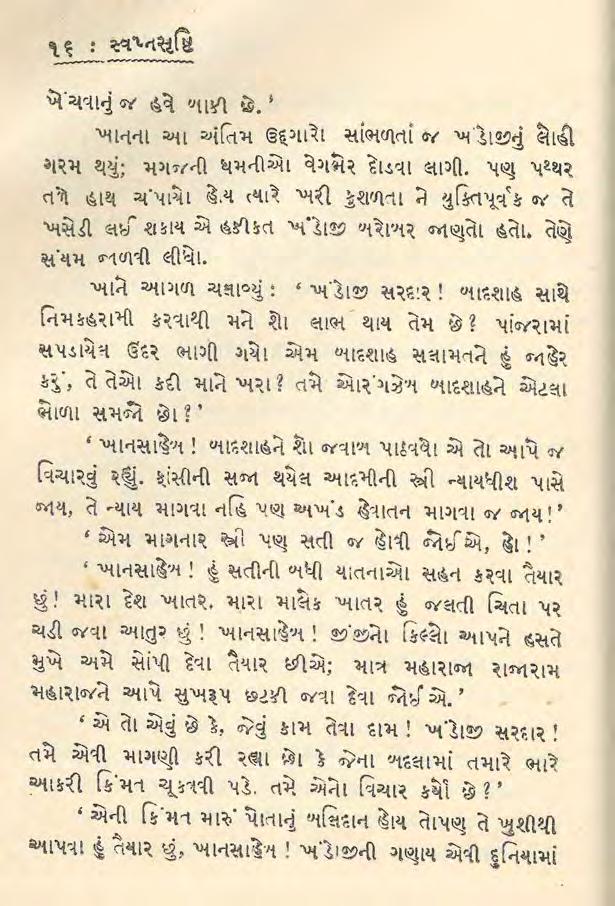 ૧૬ : સ્વપ્નસૃષ્ટિ
ખેંચવાનું જ હવે બાકી છે.’
ખાનના આ અંતિમ ઉદ્ગારો સાંભળતાં જ ખંડોજીનું લોહી
ગરમ થયું; મગજની ધમનીઓ વેગભેર દોડવા લાગી. પણ પથ્થર
તળે હાથ ચંપાયો હોય ત્યારે ખરી કુશળતા ને યુક્તિપૂર્વક જ તે
ખસેડી લઈ શકાય એ હકીકત ખંડોજી બરોબર જાણતો હતો. તેણે
સંયમ જાળવી લીધો.
ખાને આગળ ચલાવ્યું : ‘ ખંડોજી સરદાર ! બાદશાહ સાથે
નિમકહરામી કરવાથી મને શો લાભ થાય તેમ છે ? પાંજરામાં
સપડાયેલ ઉંદર ભાગી ગયો એમ બાદશાહ સલામતને હું જાહેર
કરું, તે તેઓ કદી માને ખરા ? તમે ઓરંગઝેબ બાદશાહને એટલા
ભોળા સમજો છો ?’
‘ ખાનસાહેબ ! બાદશાહને શો જવાબ પાઠવવો એ તો આપે જ
વિચારવું રહ્યું. ફાંસીની સજા થયેલ આદમીની સ્ત્રી ન્યાયધીશ પાસે
જાય, તે ન્યાય માગવા નહિ પણ અખંડ હેવાતન માગવા જ જાય !’
‘ એમ માગનાર સ્ત્રી પણ સતી જ હોવી જોઈએ, હો ! ’
‘ ખાનસાહેબ ! હું સતીની બધી યાતનાઓ સહન કરવા તૈયાર
છું ! મારા દેશ ખાતર. મારા માલેક ખાતર હું જલતી ચિતા પર
ચડી જવા આતુર છું ! ખાનસાહેબ ! જીંજીનો કિલ્લો આપને હસતે
મુખે અમે સોંપી દેવા તૈયાર છીએ; માત્ર મહારાજા રાજારામ
મહારાજને આપે સુખરૂપ છટકી જવા દેવા જોઈએ.’
‘ એ તો એવું છે કે, જેવું કામ તેવા દામ ! ખંડોજી સરદાર !
તમે એવી માગણી કરી રહ્યા છો કે જેના બદલામાં તમારે ભારે
આકરી કિંમત ચૂકવવી પડે. તમે એનો વિચાર કર્યો છે ?’
‘ એની કિંમત મારું પોતાનું બલિદાન હોય તોપણ તે ખુશીથી
આપવા હું તૈયાર છું, ખાનસાહેબ ! ખંડોજીની ગણાય એવી દુનિયામાં